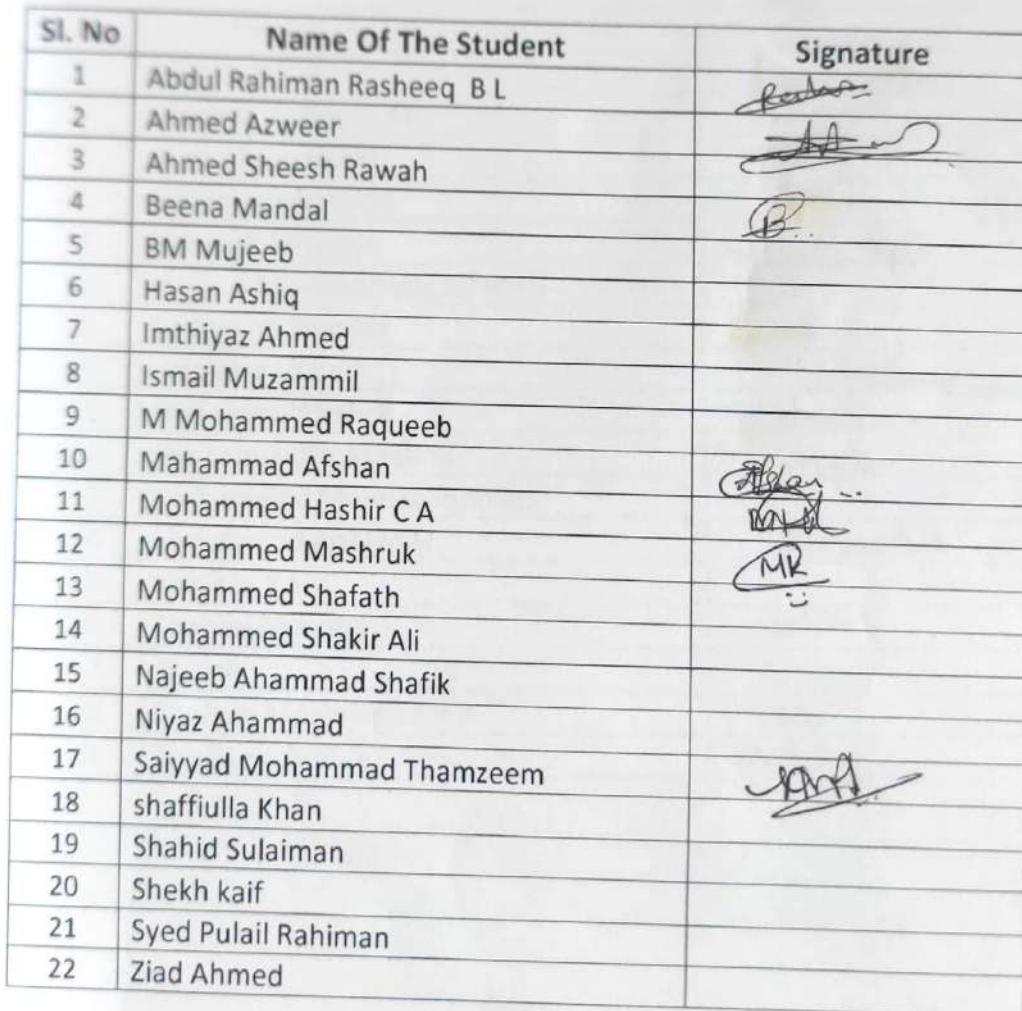 Sl. No Name Of The Student Signature
1 Abdul Rahiman Rasheeq B L
2 Ahmed Azweer
3 Ahmed Sheesh Rawah
4 Beena Mandal B..
5 BM Mujeeb
6 Hasan Ashiq
7 Imthiyaz Ahmed
8 Ismail Muzammil
9 M Mohammed Raqueeb
10 Mahammad Afshan Afshan ..
11 Mohammed Hashir C A
12 Mohammed Mashruk MK
13 Mohammed Shafath
14 Mohammed Shakir Ali
15 Najeeb Ahammad Shafik
16 Niyaz Ahammad
17 Saiyyad Mohammad Thamzeem
18 shaffiulla Khan
19 Shahid Sulaiman
20 Shekh kaif
21 Syed Pulail Rahiman
22 Ziad Ahmed